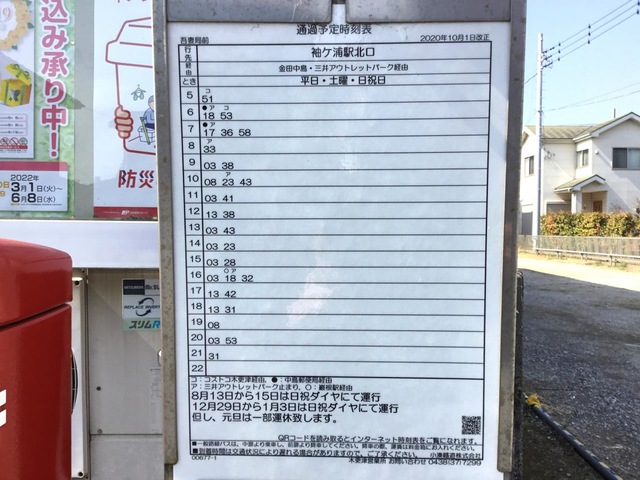 通過予定時刻表
吾妻局前
2020年10月1日改正
行先 袖ケ浦駅北口
経由 金田中島・三井アウトレットパーク経由
とき 平日・土曜・日祝日
コ
5 51
●ア コ
6 18 53
●ア
7 17 36 58
ア
8 33
9 03 38
ア
10 08 23 43
11 03 41
12 13 38
13 03 43
14 03 23
15 03 28
○ア
16 03 18 32
17 13 42
18 13 31
19 08
20 03 53
21 31
22
コ：コストコ木更津経由、●：中島郵便局経由
ア：三井アウトレットパーク止まり、○：巌根駅経由
8月13日から15日は日祝ダイヤにて運行
12月29日から1月3日は日祝ダイヤにて運行
但し、元旦は一部運休致します。
QRコードを読み取るとインターネット時刻表をご覧になれます。
■一般路線バスは、中扉より乗車し、前扉より降車してください。降車の際、運賃は料金箱にお入れください。
■到着時間は交通状況により遅れる場合がありますので、ご了承ください。 小湊鐵道株式会社
00677-1
木更津営業所 お問い合わせ 0438(37)7299
込み承り中!
2022
3月1日㈫〜
6月8日㈬
防災
REPLACE INVERTER
スリムR